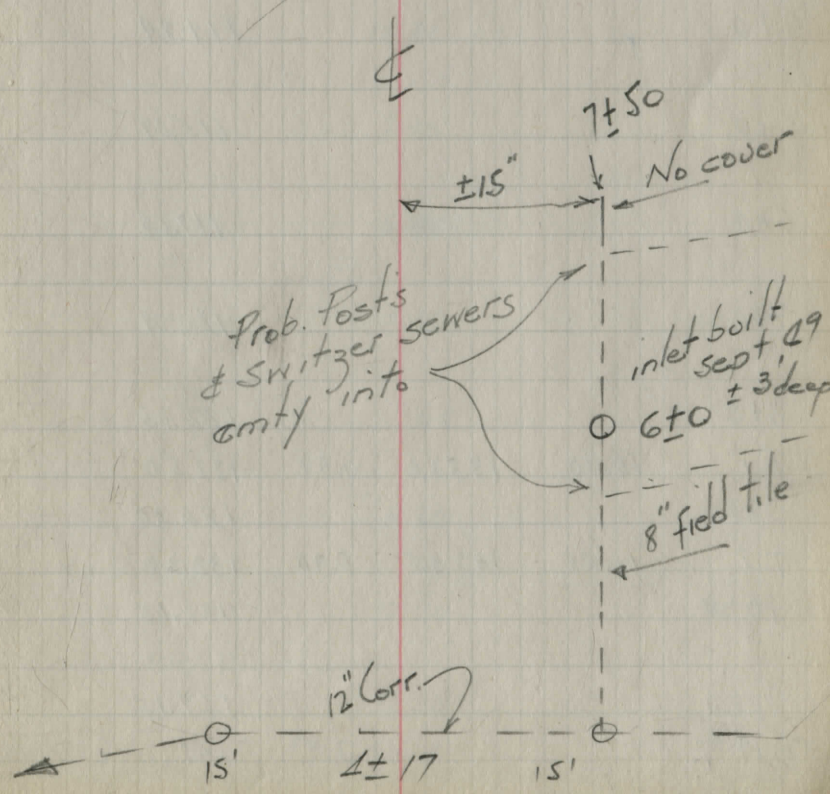 ℄
7±50
±15"
No cover
Prob. Post's
& Switzer sewers
emty into
inlet built
sept, 49
± 3' deep
6±0
8" field tile
12" Corr.
15'
4±17
15'